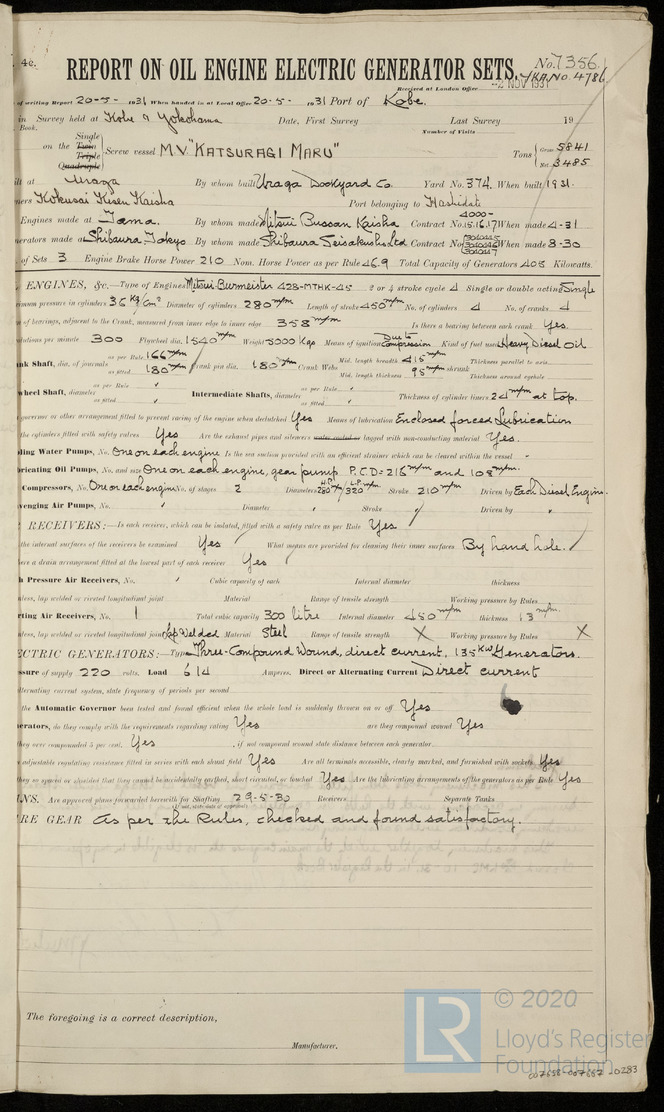 4c.
REPORT ON OIL ENGINE ELECTRIC GENERATOR SETS.
No. 7356.
YKA. No. 4786
Received at London Office
-2 NOV 1931
of writing Report 20-5- 1931 When handed in at Local Office 20-5- 1931 Port of Kobe.
in Survey held at Kobe & Yokohama Date, First Survey Last Survey 19
Book. Number of Visits
on the Single Twin Triple Quadruple Screw vessel M.V "KATSURAGI MARU" Tons Gross 5841 Net 3485
at Uraga By whom built Uraga Dockyard Co. Yard No. 374. When built 1931.
Kokusai Kisen Kaisha Port belonging to Hashidate
Engines made at Tama. By whom made Mitsui Bussan Kaisha Contract No. 4000-15.16.17 When made 4-31
made at Shibaura Tokyo By whom made Shibaura Seisakusho Ltd Contract No. When made 8-30
of Sets 3 Engine Brake Horse Power 210 Nom. Horse Power as per Rule 46.9 Total Capacity of Generators 405 Kilowatts.
ENGINES, &c.—Type of Engines Mitsui Burmeister 428-MTHK-45 2 or 4 stroke cycle 4 Single or double acting Single
pressure in cylinders 36 kg/cm² Diameter of cylinders 280 m/m Length of stroke 450 m/m No. of cylinders 4 No. of cranks 4
of bearings, adjacent to the Crank, measured from inner edge to inner edge 358 m/m Is there a bearing between each crank Yes.
per minute 300 Flywheel dia. 1540 m/m Weight 5000 Kgs Means of ignition Due to Compression Kind of fuel used Heavy Diesel Oil
Shaft, dia. of journals as per Rule 166 m/m as fitted 180 m/m Crank pin dia. 180 m/m Crank Webs Mid. length breadth 415 m/m Mid. length thickness 95 m/m shrunk Thickness parallel to axis Thickness around eyehole
wheel Shaft, diameter as per Rule as fitted Intermediate Shafts, diameter as per Rule as fitted Thickness of cylinder liners 24 m/m at top.
governor or other arrangement fitted to prevent racing of the engine when declutched Yes Means of lubrication Enclosed forced Lubrication
the cylinders fitted with safety valves Yes Are the exhaust pipes and silencers water cooled or lagged with non-conducting material Yes.
Water Pumps, No. One on each engine Is the sea suction provided with an efficient strainer which can be cleared within the vessel
Oil Pumps, No. and size One on each engine, gear pump P.C.D = 216 m/m and 108 m/m.
Compressors, No. One on each engine No. of stages 2 Diameters H.P. 280 m/m L.P. 320 m/m Stroke 210 m/m Driven by Each Diesel Engine.
Air Pumps, No. Diameter Stroke Driven by
RECEIVERS:—Is each receiver, which can be isolated, fitted with a safety valve as per Rule Yes
the internal surfaces of the receivers be examined Yes What means are provided for cleaning their inner surfaces By hand hole.
a drain arrangement fitted at the lowest part of each receiver Yes
Pressure Air Receivers, No. Cubic capacity of each Internal diameter thickness
lap welded or riveted longitudinal joint Material Range of tensile strength Working pressure by Rules
Air Receivers, No. 1 Total cubic capacity 300 litre Internal diameter 450 m/m thickness 13 m/m.
lap welded or riveted longitudinal joint Lap Welded Material Steel Range of tensile strength X Working pressure by Rules X
ELECTRIC GENERATORS:—Type Three-Compound Wound, direct current, 135 KW Generators.
of supply 220 volts. Load 614 Amperes. Direct or Alternating Current Direct current
alternating current system, state frequency of periods per second
the Automatic Governor been tested and found efficient when the whole load is suddenly thrown on or off Yes
do they comply with the requirements regarding rating Yes are they compound wound Yes
they over compounded 5 per cent. Yes , if not compound wound state distance between each generator
adjustable regulating resistance fitted in series with each shunt field Yes Are all terminals accessible, clearly marked, and furnished with sockets Yes
they so spaced or shielded that they cannot be accidentally earthed, short circuited, or touched Yes Are the lubricating arrangements of the generators as per Rule Yes
Are approved plans forwarded herewith for Shafting 29-5-30 Receivers Separate Tanks
GEAR As per the Rules, checked and found satisfactory.
The foregoing is a correct description,
Manufacturer.
LR © 2020
Lloyd's Register
Foundation
007658-007687-0283